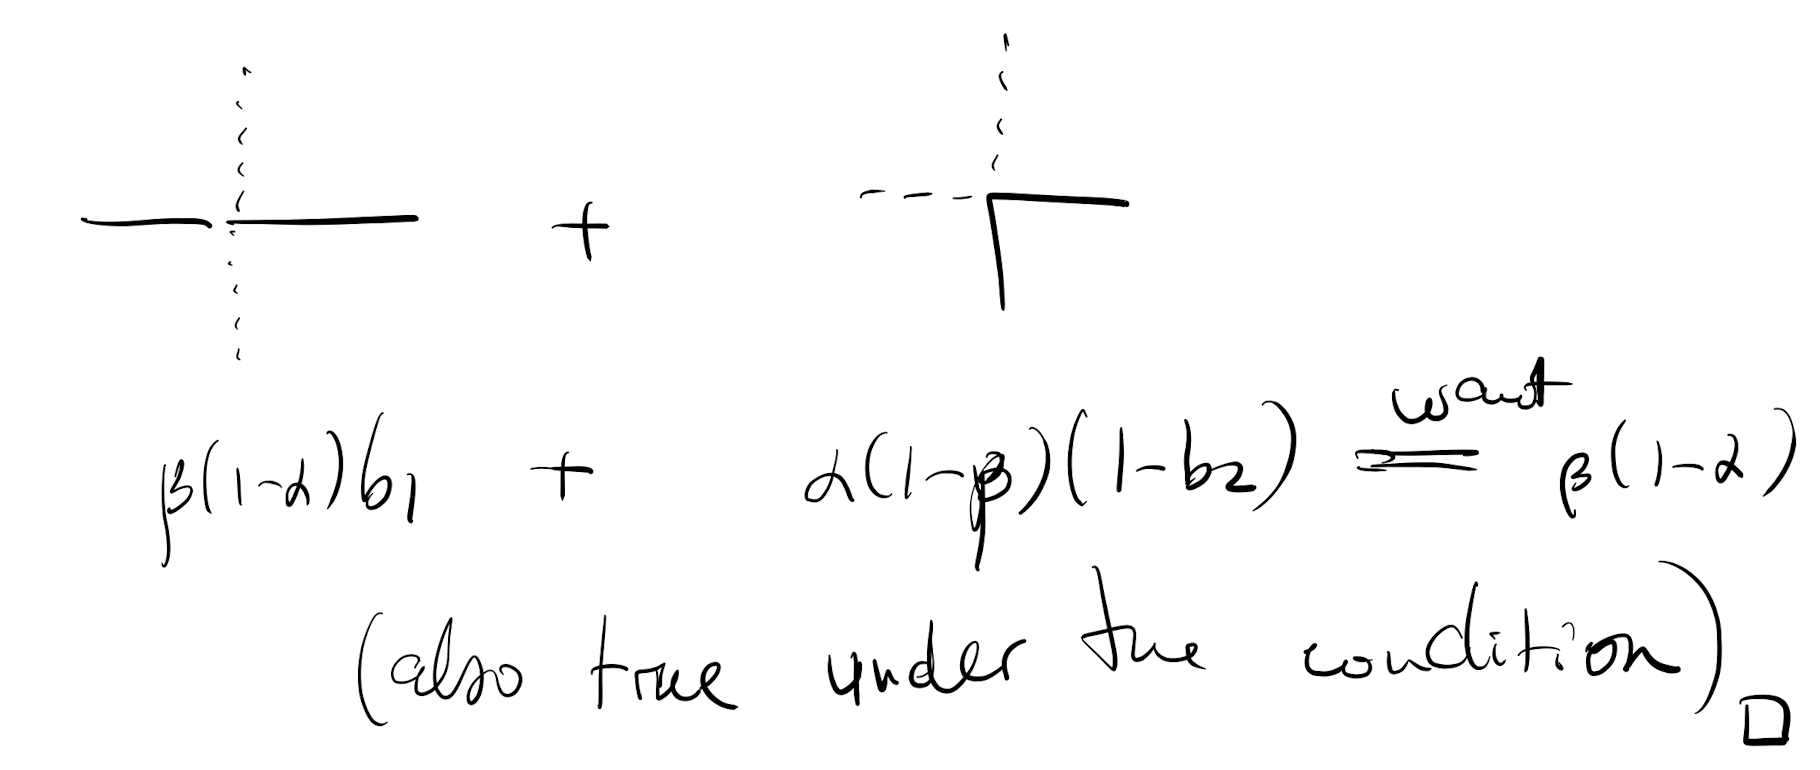 +
want
β(1-α)b₁ + α(1-β)(1-b₂) = β(1-α)
(also true under the condition) □